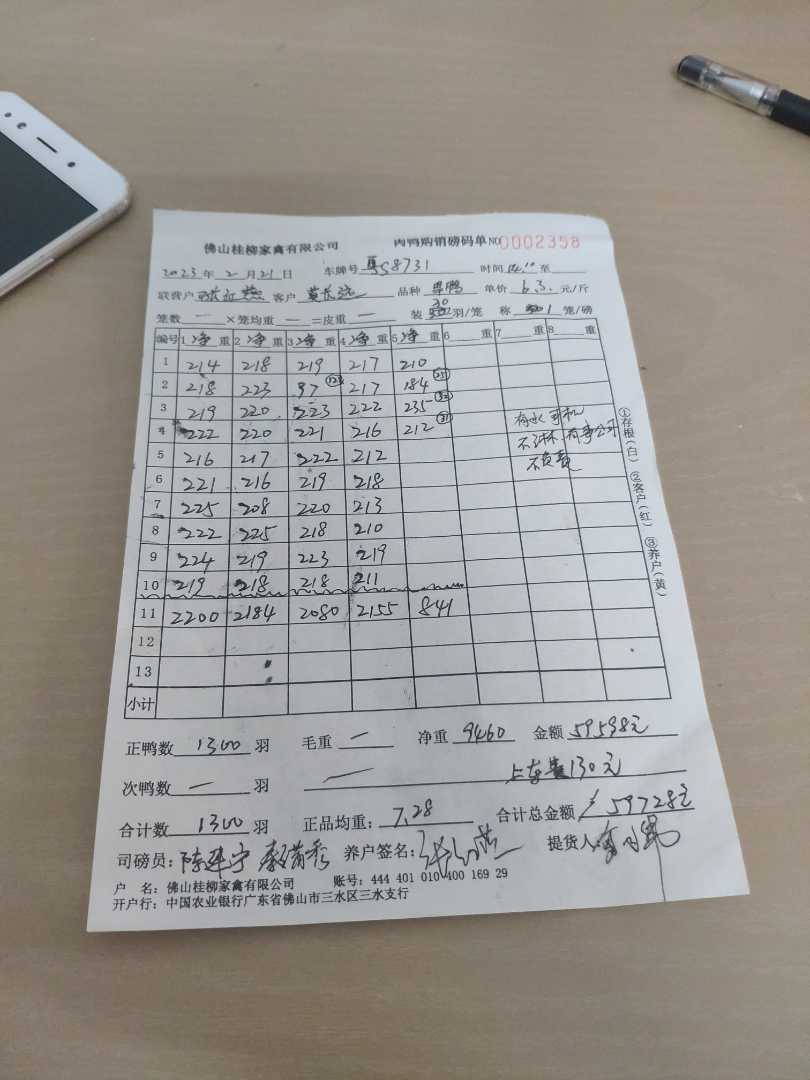 佛山桂柳家禽有限公司 肉鸭购销磅码单 NO 0002358
2023年2月21日 车牌号 粤S8731 时间 14.10 至
联营户 客户 品种 单价 6.3 元/斤
笼数 一 ×笼均重 一 =皮重 一 装 30 羽/笼 称 1 笼/磅
编号 1 净 重 2 净 重 3 净 重 4 净 重 5 净 重 6 重 7 重 8 重
1 214 218 219 217 210
2 218 223 97 217 184 25
3 219 220 223 222 235
4 222 220 221 216 212
5 216 217 222 212
6 221 216 219 218
7 225 208 220 213
8 222 225 218 210
9 224 219 223 219
10 219 218 218 211
11 2200 2184 2080 2155 841
12
13
小计
有水 司机
不淋 有事公司
不负责
①存根(白) ②客户(红) ③养户(黄)
正鸭数 1300 羽 毛重 一 净重 9460 金额 59598元
次鸭数 一 羽 一 上车费130元
合计数 1300 羽 正品均重: 7.28 合计总金额 59728元
司磅员: 养户签名: 提货人:
户 名: 佛山桂柳家禽有限公司 账号: 444 401 010 400 169 29
开户行: 中国农业银行广东省佛山市三水区三水支行